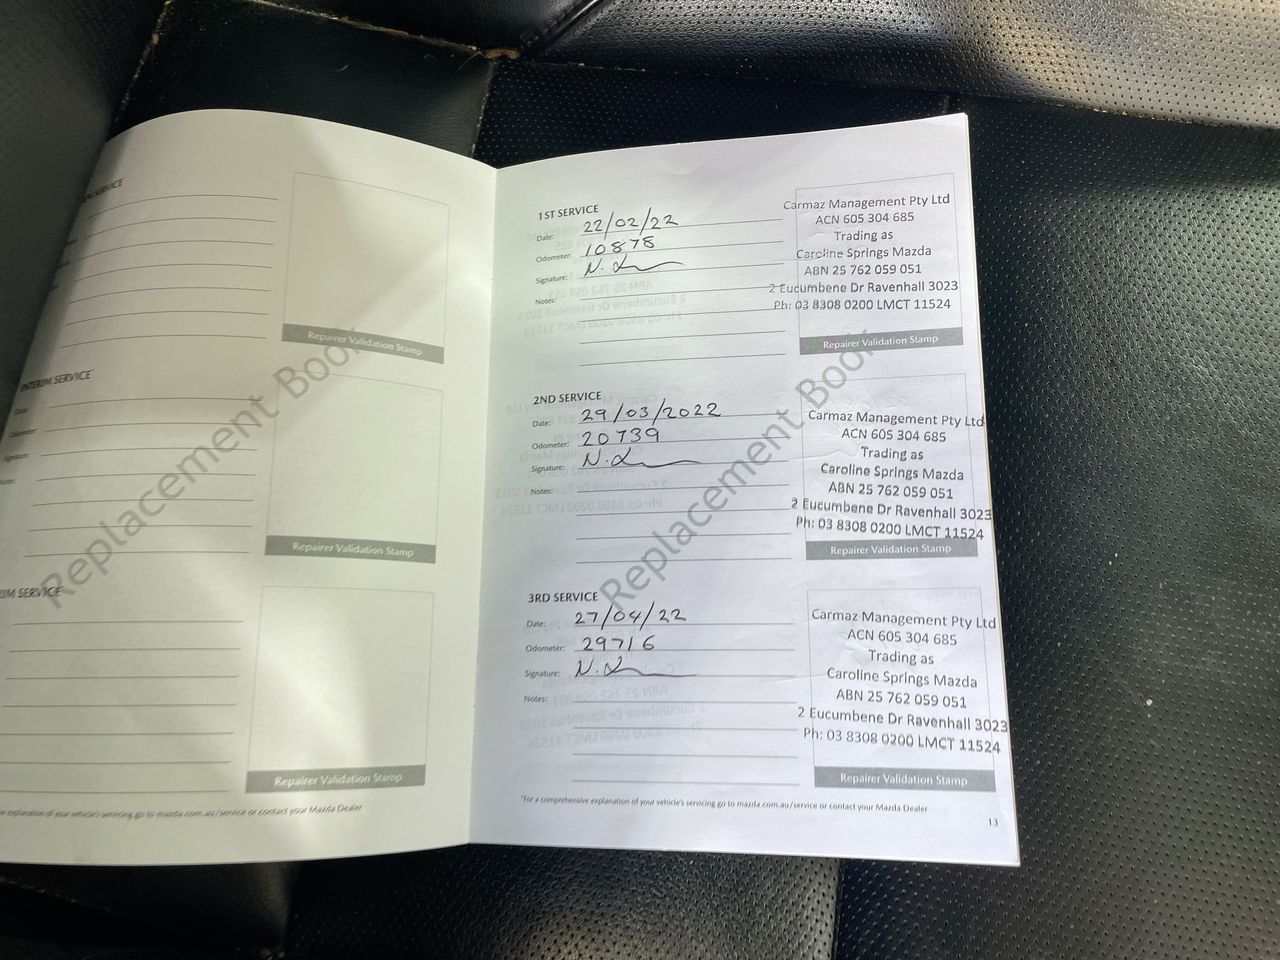 SERVICE
Repairer Validation Stamp
INTERIM SERVICE
Date:
Repairer Validation Stamp
SERVICE
Repairer Validation Stamp
explanation of your vehicle's servicing go to mazda.com.au/service or contact your Mazda Dealer
Replacement Book
1ST SERVICE
Date: 22/02/22
Odometer: 10878
Signature: N.
Notes:
Carmaz Management Pty Ltd
ACN 605 304 685
Trading as
Caroline Springs Mazda
ABN 25 762 059 051
2 Eucumbene Dr Ravenhall 3023
Ph: 03 8308 0200 LMCT 11524
Repairer Validation Stamp
2ND SERVICE
Date: 29/03/2022
Odometer: 20739
Signature: N.
Notes:
Carmaz Management Pty Ltd
ACN 605 304 685
Trading as
Caroline Springs Mazda
ABN 25 762 059 051
2 Eucumbene Dr Ravenhall 3023
Ph: 03 8308 0200 LMCT 11524
Repairer Validation Stamp
3RD SERVICE
Date: 27/04/22
Odometer: 29716
Signature: N.
Notes:
Carmaz Management Pty Ltd
ACN 605 304 685
Trading as
Caroline Springs Mazda
ABN 25 762 059 051
2 Eucumbene Dr Ravenhall 3023
Ph: 03 8308 0200 LMCT 11524
Repairer Validation Stamp
Replacement Book
*For a comprehensive explanation of your vehicle's servicing go to mazda.com.au/service or contact your Mazda Dealer
13